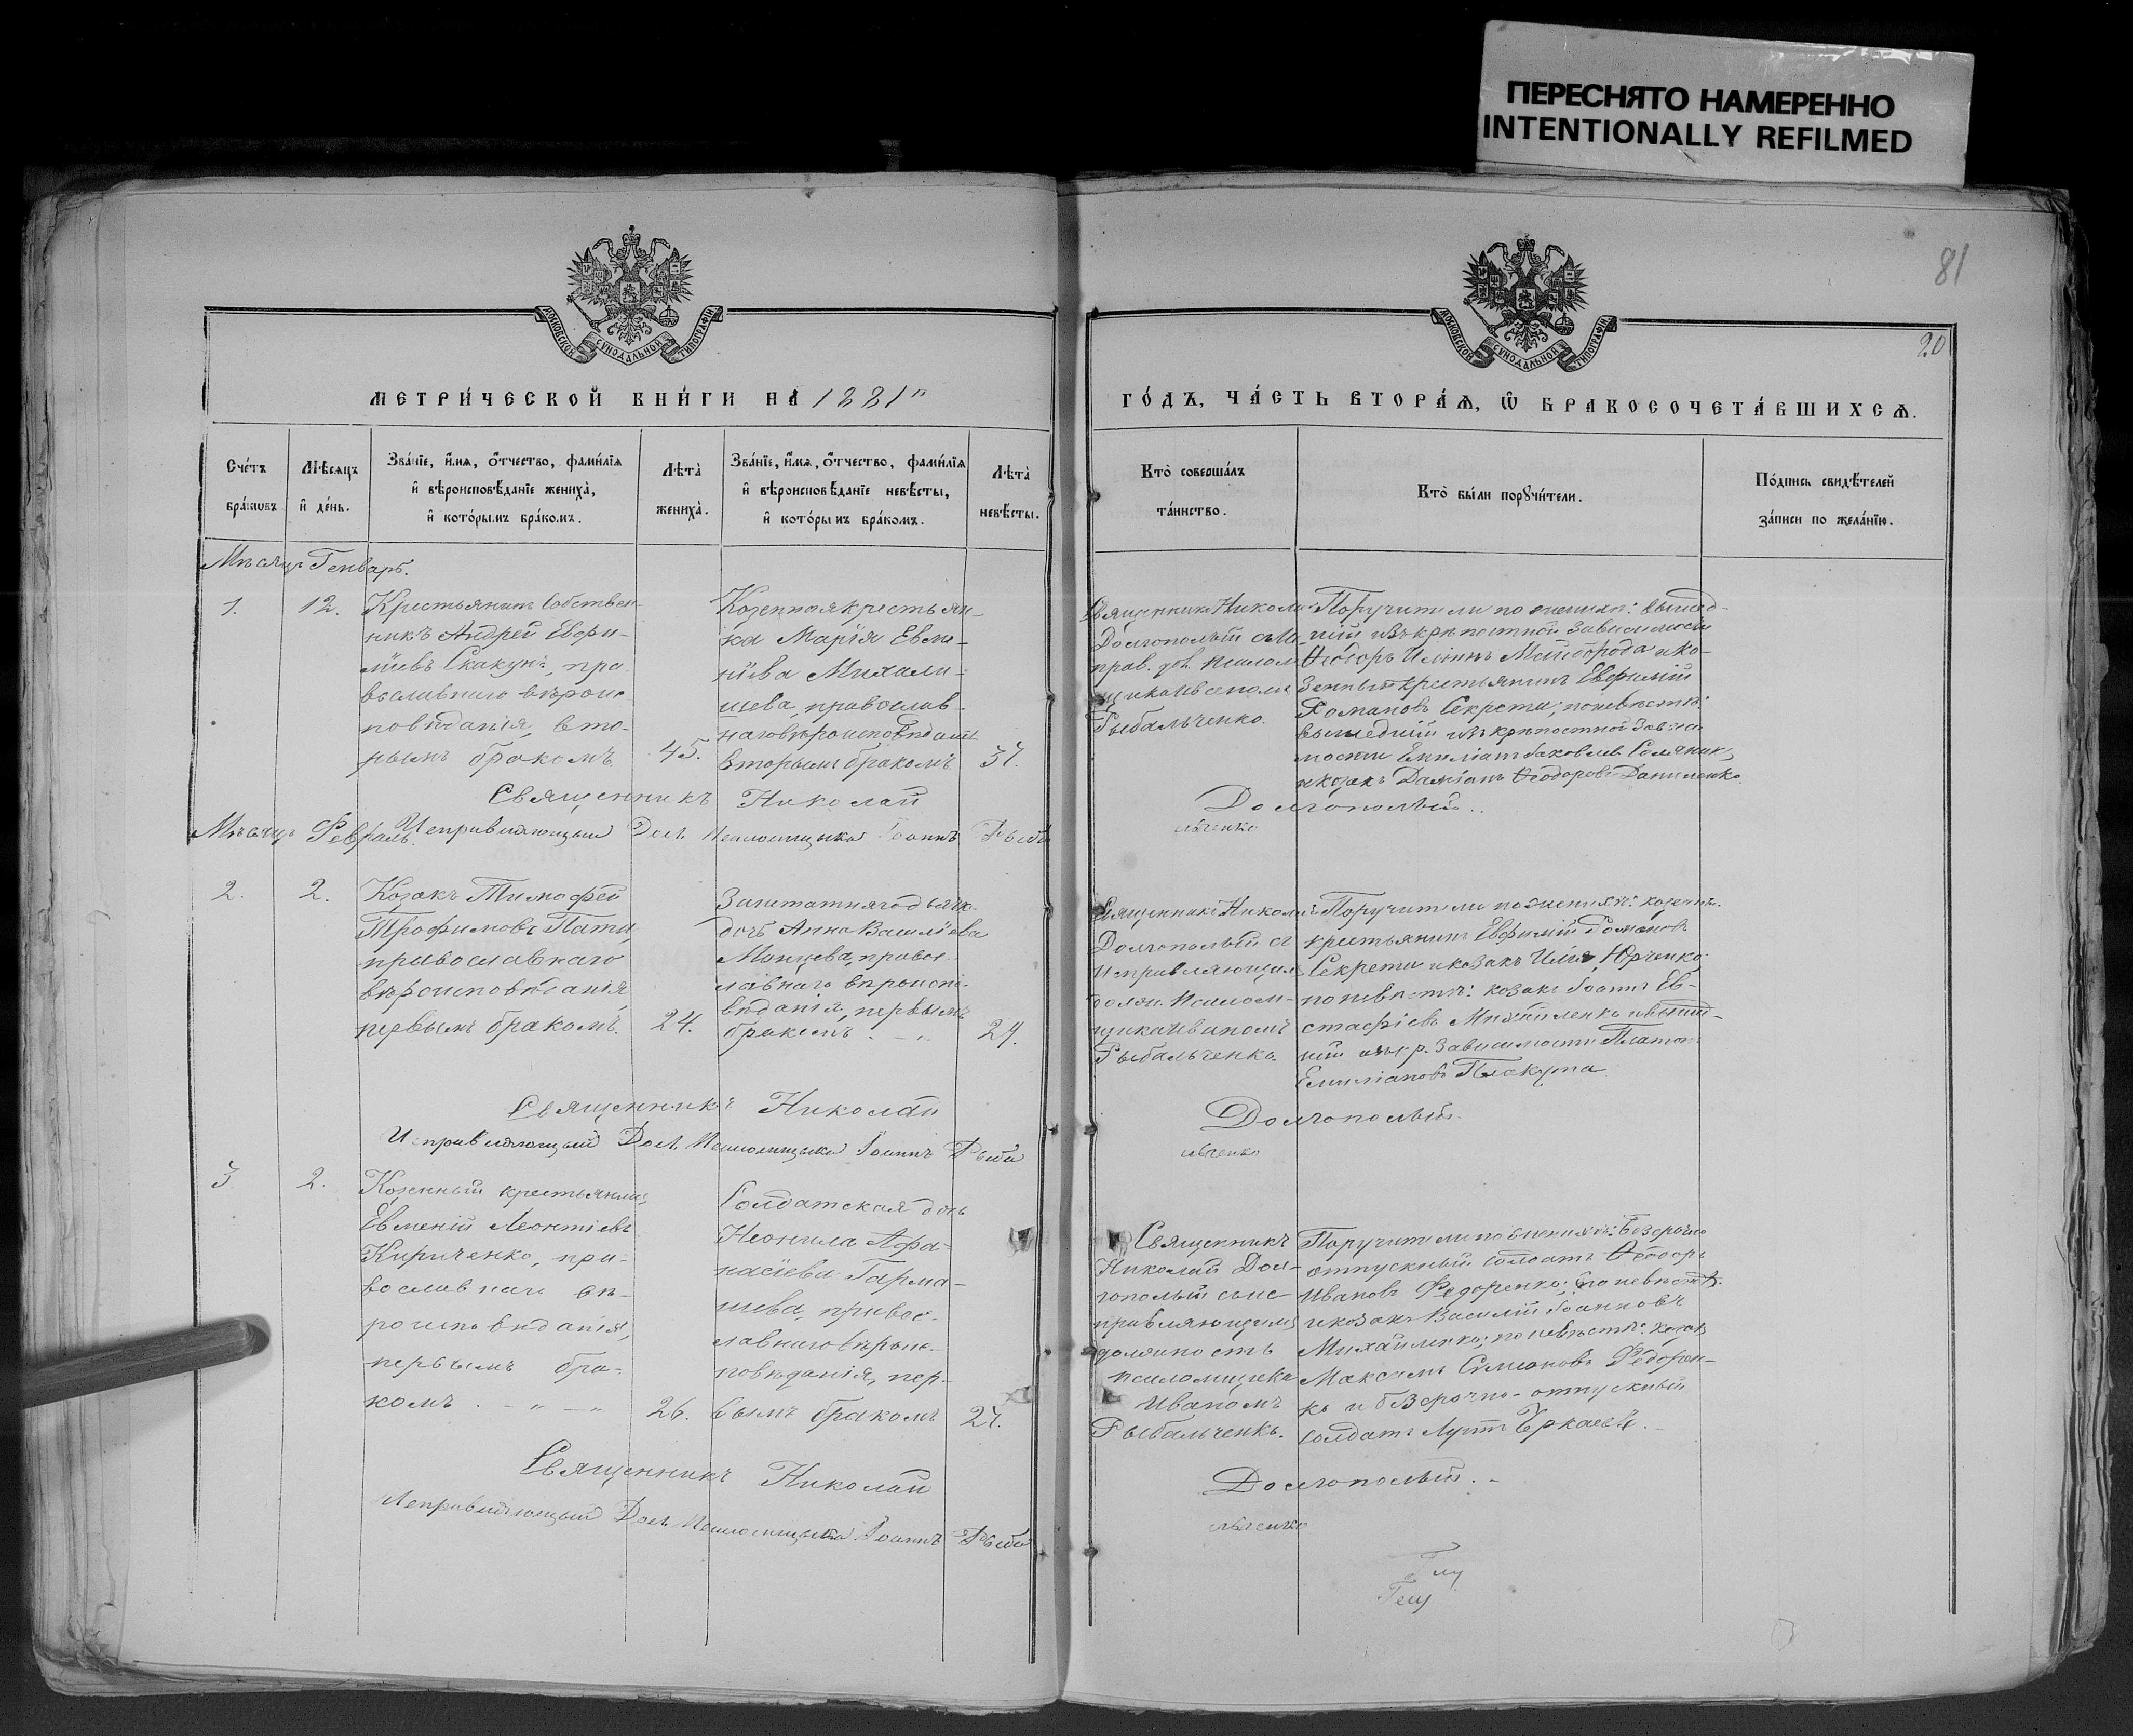 ПЕРЕСНЯТО НАМЕРЕННО
INTENTIONALLY REFILMED
81
20
МОСКОВСКОЙ СѴНОДАЛЬНОЙ ТИПОГРАФІИ
МОСКОВСКОЙ СѴНОДАЛЬНОЙ ТИПОГРАФІИ
МЕТРИ́ЧЕСКОЙ КНИ́ГИ НА 1881
ГО́ДЪ, ЧА́СТЬ ВТОРА́Ѧ, Ѿ БРАКОСОЧЕТА́ВШИХСѦ.
Сче́тъ
бра́ковъ
Мѣ́сяцъ
и де́нь.
Зва́нїе, и́мѧ, о́тчество, фами́лїѧ
и вѣроисповѣ́данїе жениха̀,
и кото́рымъ бра́комъ.
Лѣта̀
жениха̀.
Зва́нїе, и́мѧ, о́тчество, фами́лїѧ
и вѣроисповѣ́данїе невѣ́сты,
и кото́рымъ бра́комъ.
Лѣта̀
невѣ́сты.
Кто̀ соверша́лъ
та́инство.
Кто̀ бы́ли порꙋчи́тели.
По́дпись свидѣ́телей
за́писи по жела́нїю.
Мѣсяцъ Генварь.
1.
12.
Крестьянинъ собствен-
никъ Андрей Евфи-
міевъ Скакунъ, пра-
вославнаго вѣроис-
повѣданія, вто-
рымъ бракомъ.
45.
Козенная крестьян-
ка Марія Евме-
ніева
православ-
наго вѣроисповѣданія
вторымъ бракомъ
37.
Священникъ Николай
Долгополый съ
псалом-
щика
Рыбальченко.
Поручители по женихѣ: вышед-
шій изъ крѣпостной зависимости
Ѳеодоръ Иліинъ Майборода и ко-
зенный крестьянинъ Евфимій
Романовъ Секрета; по невѣстѣ:
вышедшій изъ крѣпостной зависи-
мости Емиліанъ Іаковлевъ
и козакъ Даміанъ Ѳеодоровъ Даниленко.
Священникъ Николай Долгополый.
Мѣсяцъ Февраль. Исправляющій Дол. Псаломщика Іоаннъ Рыба
льченко
2.
2.
Козакъ Тимофей
Трофимовъ Пата,
православнаго
вѣроисповѣданія
первымъ бракомъ.
24.
Заштатнаго дьяч.
дочь Анна Василіева
правос-
лавнаго вѣроиспо-
вѣданія, первымъ
бракомъ. - „
24.
Священникъ Николай
Долгополый съ
исправляющимъ
должн. псалом-
щика Иваномъ
Рыбальченко.
Поручители по женихѣ: козен.
крестьянинъ Евфимій Романовъ
Секрета и козакъ Илія Юрченко;
по невѣстѣ: козакъ Іоаннъ Ев-
стафіевъ Михайленко и вышед-
шій изъ кр. зависимости Платонъ
Емиліановъ Плакута.
Священникъ Николай Долгополый.
Исправляющій Дол. Псаломщика Іоаннъ Рыба
льченко
3
2.
Козенный крестьянинъ
Евменій Леонтіевъ
Кириченко, пра-
вославнаго вѣ-
роисповѣданія,
первымъ бра-
комъ. - „ -
26.
Солдатская дочь
Неонила Афа-
насіева Гарма-
шева, правос-
лавнаго вѣроис-
повѣданія, пер-
вымъ бракомъ
27.
Священникъ
Николай Дол-
гополый съ ис-
правляющимъ
должность
псаломщика
Иваномъ
Рыбальченко.
Поручители по женихѣ: безсрочно
отпускный солдатъ Ѳеодоръ
Ивановъ Федоренко;
и козакъ Василій Іоанновъ
Михайленко; по невѣстѣ: козакъ
Максимъ Симіоновъ Федорен-
ко и безсрочно-отпускный
солдатъ
Священникъ Николай Долгополый. -
Исправляющій Дол. Псаломщика Іоаннъ Рыба
льченко